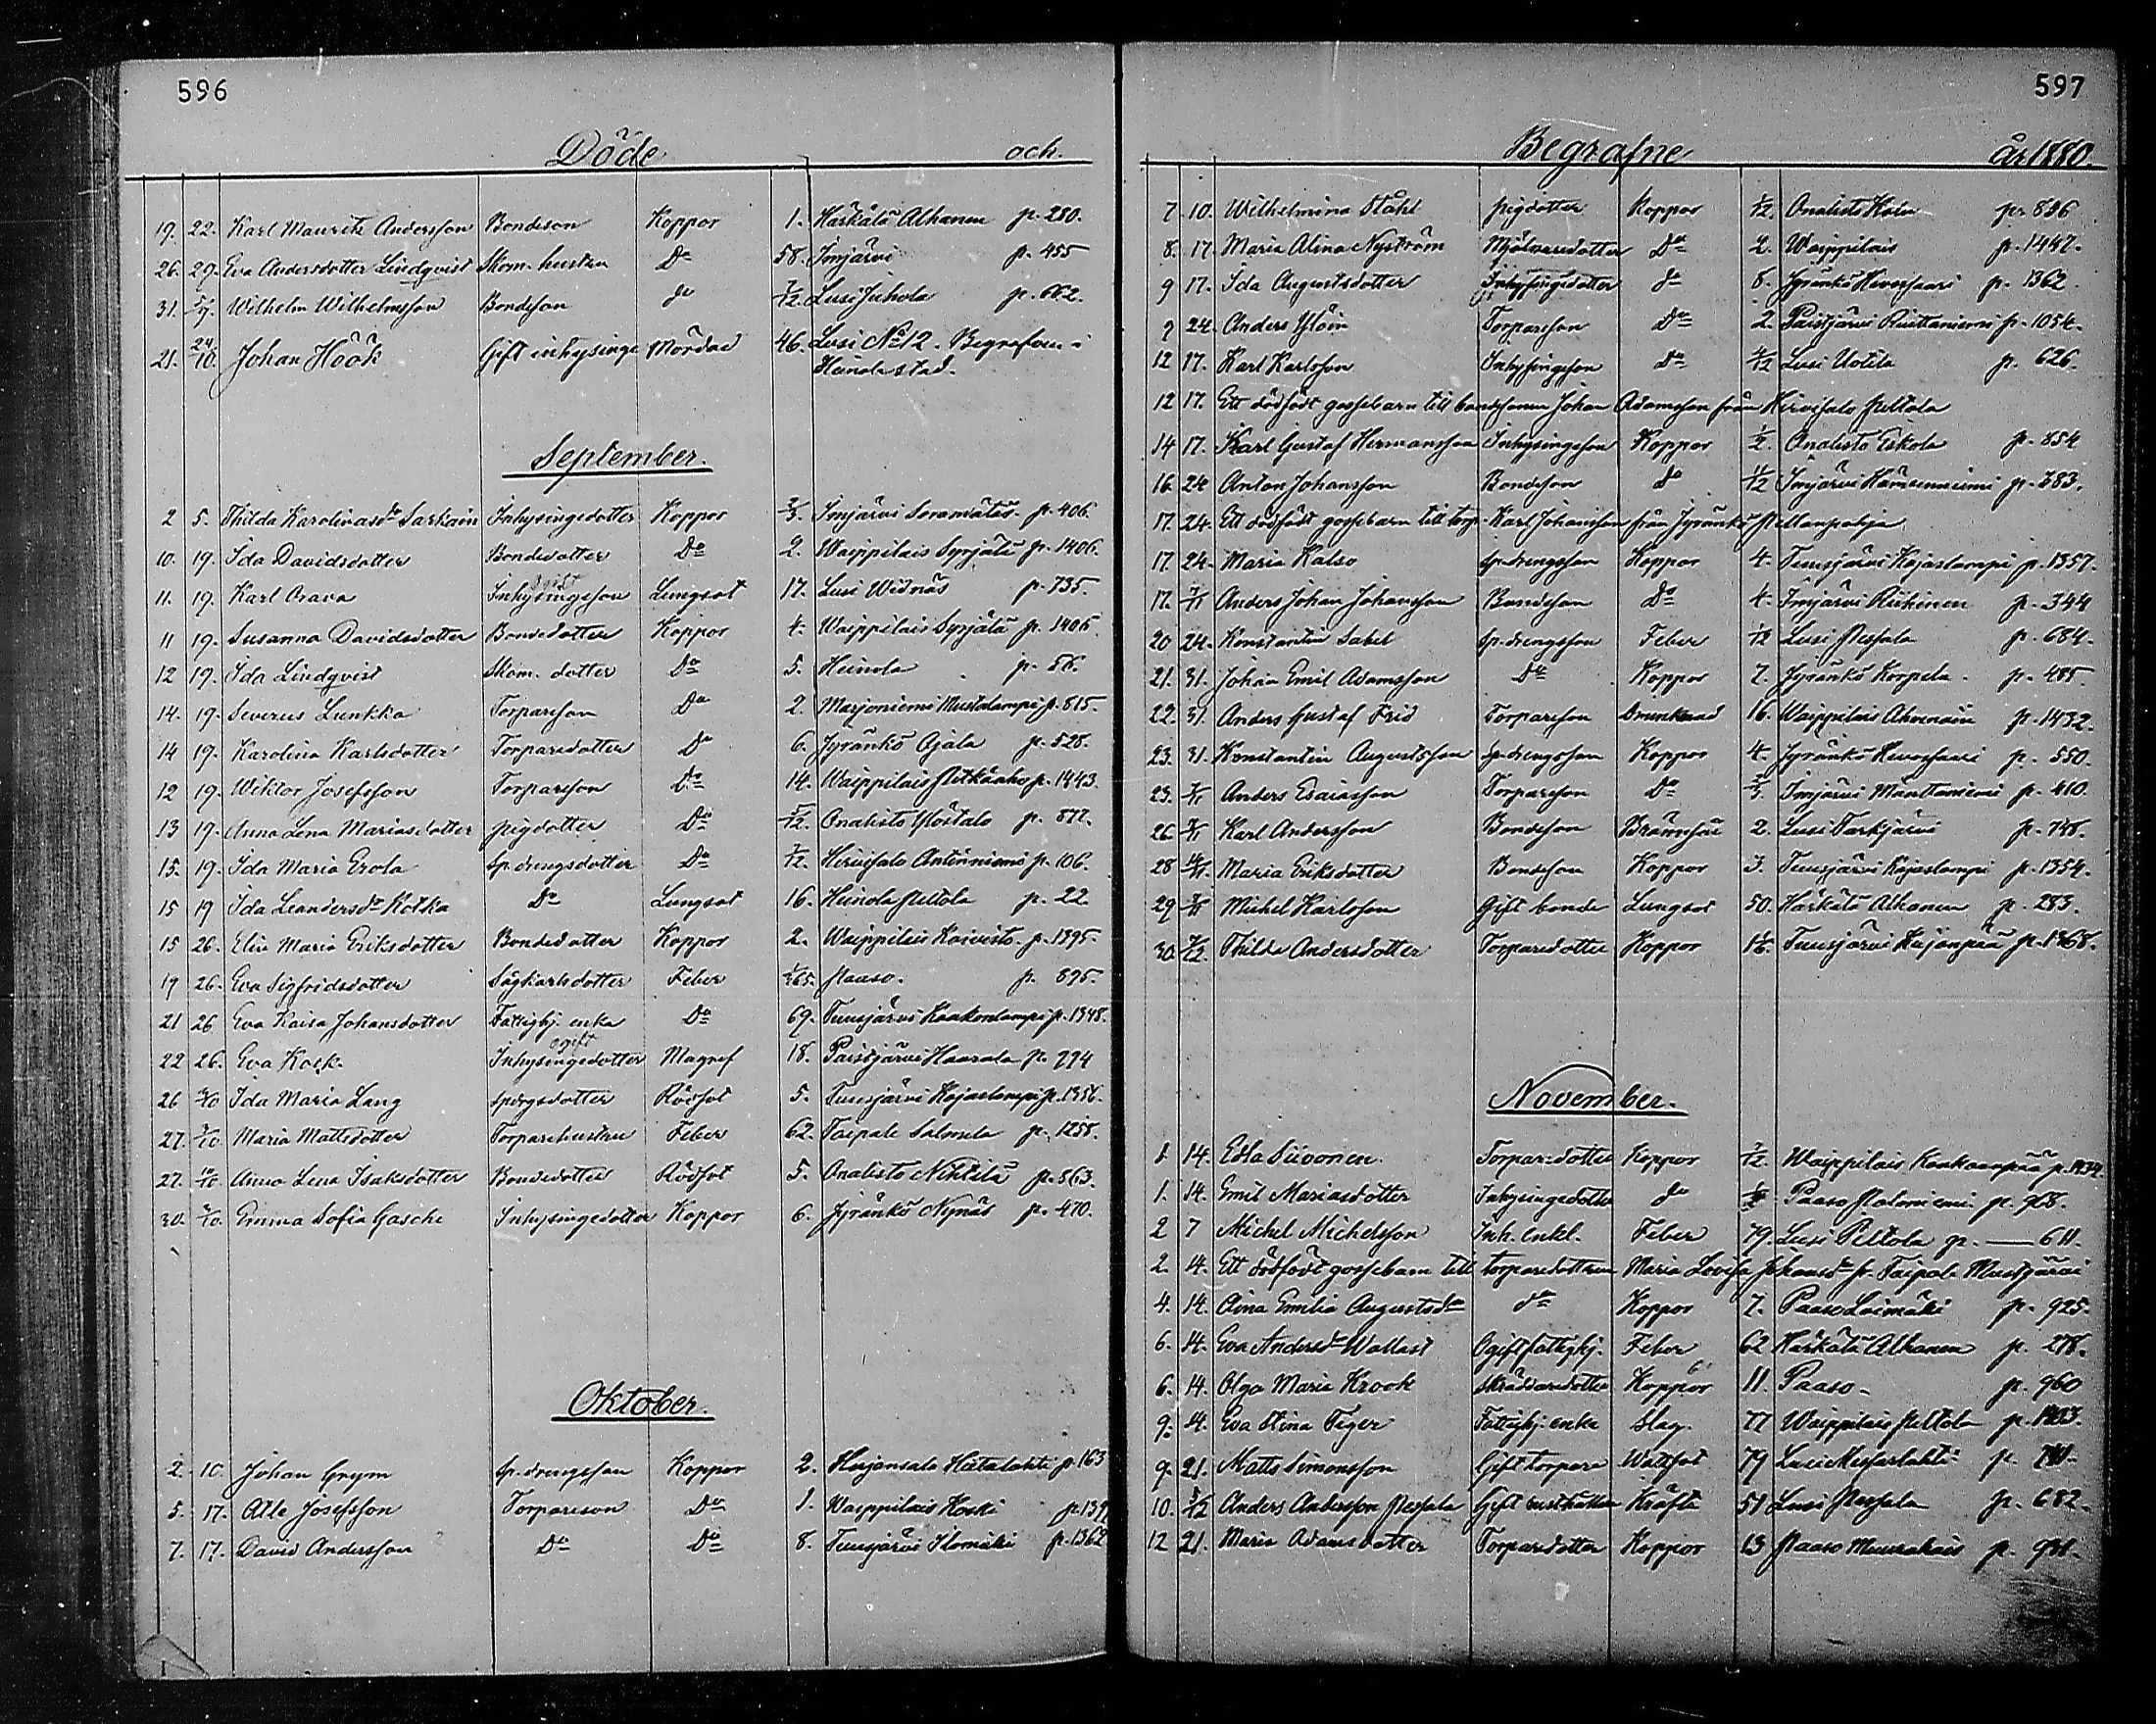 596
Döde och
19. 22. Karl Mauritz Andersson Bondeson Koppor 1. Härkälä Alhanen p. 280.
26. 29. Eva Andersdotter Lindqvist Skom. hustru Do 58. Imjärvi p. 455
31. 5/9. Wilhelm Wilhelmsson Bondeson do 7/12 Lusi Juhola p. 662.
21. 24/10. Johan Höök Gift inhysinge Mördad 46. Lusi No 12. Begrafven i
Heinola stad.
September.
2 5. Thilda Karolinasdr Sarkain Inhysingedotter Koppor Imjärvi p. 406.
10. 19. Ida Davidsdotter Bondedotter Do 2. Waippilais Syrjälä p. 1406.
11. 19. Karl Orava Inhysingeson ogift Lungsot 17. Lusi Widnäs p. 735.
11 19. Susanna Davidsdotter Bondedotter Koppor 4. Waippilais Syrjälä p. 1406.
12 19. Ida Lindqvist Skom. dotter Do 5. Heinola p. 56.
14. 19. Severus Lunkka Torpareson Do 2. Marjoniemi Mustalampi p. 815.
14 19. Karolina Karlsdotter Torparedotter Do 6. Jyränkö Ajala p. 528.
12 19. Wiktor Josefsson Torpareson Do 14. Waippilais Pitkäaho p. 1443.
13 19. Anna Lena Mariasdotter pigdotter Do 5/12. Onalisto p. 877.
15. 19. Ida Maria Erola Sp. drengsdotter Do 7/12. Hirvisalo Anttinniemi p. 106.
15 19 Ida Leandersdr Kotka Do Lungsot 16. Heinola Peltola p. 22
15 26. Elin Maria Eriksdotter Bondedotter Koppor 2. Waippilais Koivisto. p. 1395.
19 26. Eva Sigfridsdotter Sågkarlsdotter Feber 65. Paaso. p. 895.
21 26 Eva Kaisa Johansdotter Fattighj. enka Do 69. Tuusjärvi Kaakonlampi p. 1348.
22 26. Eva Kock. Inhysingedotter ogift Magref 18. Paistjärvi Haarala p. 294
26 3/10 Ida Maria Lang spdrgsdotter Rödsot 5. Tuusjärvi Kajaslampi p. 1356.
27. 3/10. Maria Mattsdotter Torparehustru Feber 62. Taipale Salmela p. 1258.
27. 10/10. Anna Lena Isaksdotter Bondedotter Rödsot 5. Onalisto Nikkilä p. 863.
30. 3/10. Emma Sofia Gasche Inhysingedotter Koppor 6. Jyränkö Nynäs p. 470.
Oktober.
2. 10. Johan Grym Sp. drengsson Koppor 2. Hujansalo Hietalahti p. 163
5. 17. Alle Josefsson Torpareson Do 1. Waippilais Koski p. 139
7. 17. David Andersson Do Do 8. Tuusjärvi Ilomäki p. 1362
597
Begrafne år 1880.
7 10. Wilhelmina Ståhl pigdotter Koppor 1/12. Onalisto p. 886
8. 17. Maria Alina Nyström Mjölnaredotter Do 2. Waippilais p. 1447.
9 17. Ida Augustsdotter Inhysingedotter do 8. Jyränkö Hevossaari p. 1362.
9 24. Anders Ylöin Torpareson Do 2. Paistjärvi Riuttaniemi p. 1054.
12 17. Karl Karlsson Inhysingeson Do 4/12 Lusi Uotila p. 626.
12 17. Ett dödfödt gossebarn till bondsonen Johan Adamsson från Hirvisalo Peltola
14 17. Karl Gustaf Hermansson Inhysingeson Koppor 1/2. Onalisto Eskola p. 854
16. 24 Anton Johansson Bondeson do 1/12 Imjärvi Hämeenniemi p. 383.
17. 24. Ett dödfödt gossebarn till torp. Karl Johansson från Jyränkö Pellanpohja
17. 24. Maria Kalso sp. drengsson Koppor 4. Tuusjärvi Kajaslampi p. 1357.
17. 7/11 Anders Johan Johansson Bondeson Do 4. Imjärvi Riihinen p. 344
20 24. Konstantin Sabel Sp. drengsson Feber 1/12 Lusi Pessala p. 684.
21. 31. Johan Emil Adamsson Do Koppor 7. Jyränkö Korpela p. 485.
22. 31. Anders Gustaf Frid Torpareson Drunknad 16. Waippilais Ahvenain p. 1432.
23. 31. Konstantin Augustsson Sp. drengsson Koppor 4. Jyränkö Hevossaari p. 550.
23. 7/11 Anders Esaiasson Torpareson Do Imjärvi Mänttäniemi p. 410.
26. 7/11 Karl Andersson Bondeson Brännsår 2. Lusi Tarkjärvi p. 748.
28 14/11. Maria Eriksdotter Bondeson Koppor 3. Tuusjärvi Kajaslampi p. 1354.
29 7/11 Michel Karlsson Gift bonde Lungsot 50. Härkälä Alhanen p. 283.
30. Thilda Andersdotter Torparedotter Koppor 1/6. Tuusjärvi Kujanpää p. 1368.
November.
1 14. Edla Siivonen. Torparedotter Koppor 7/12. Waippilais Kaakaanpää p. 1434.
1. 14. Emil Mariasdotter Inhysingedotter do Paaso Palmiemi p. 968.
2 7 Michel Michelsson Inh. enkl. Feber 79. Lusi Peltola p. — 611.
2. 14. Ett dödfödt gossebarn till torparedottern Maria Lovisa Johansdr fr. Taipale Mustjärvi
4. 14. Aina Emilia Augustsdr do Koppor 7. Paaso Loimäki p. 925.
6. 14. Eva Andersdr Wallast Ogift fattighj. Feber 62 Härkälä Alhanen p. 278.
6. 14. Olga Maria Krook skräddaredotter Koppor 11. Paaso p. 960
9. 14. Eva Stina Tiger Fattighj. enka Slag. 77 Waippilais Peltola p. 1403.
9. 21. Matts Simonsson Gift torpare Wattsot 79 Lusi p. 741.
10. 5/12 Anders Andersson Pessala Gift rusthållare Kräfta 51 Lusi Pessala p. 682.
12 21. Maria Adamsdotter Torparedotter Koppor 13 Paaso Muurakais p. 931.